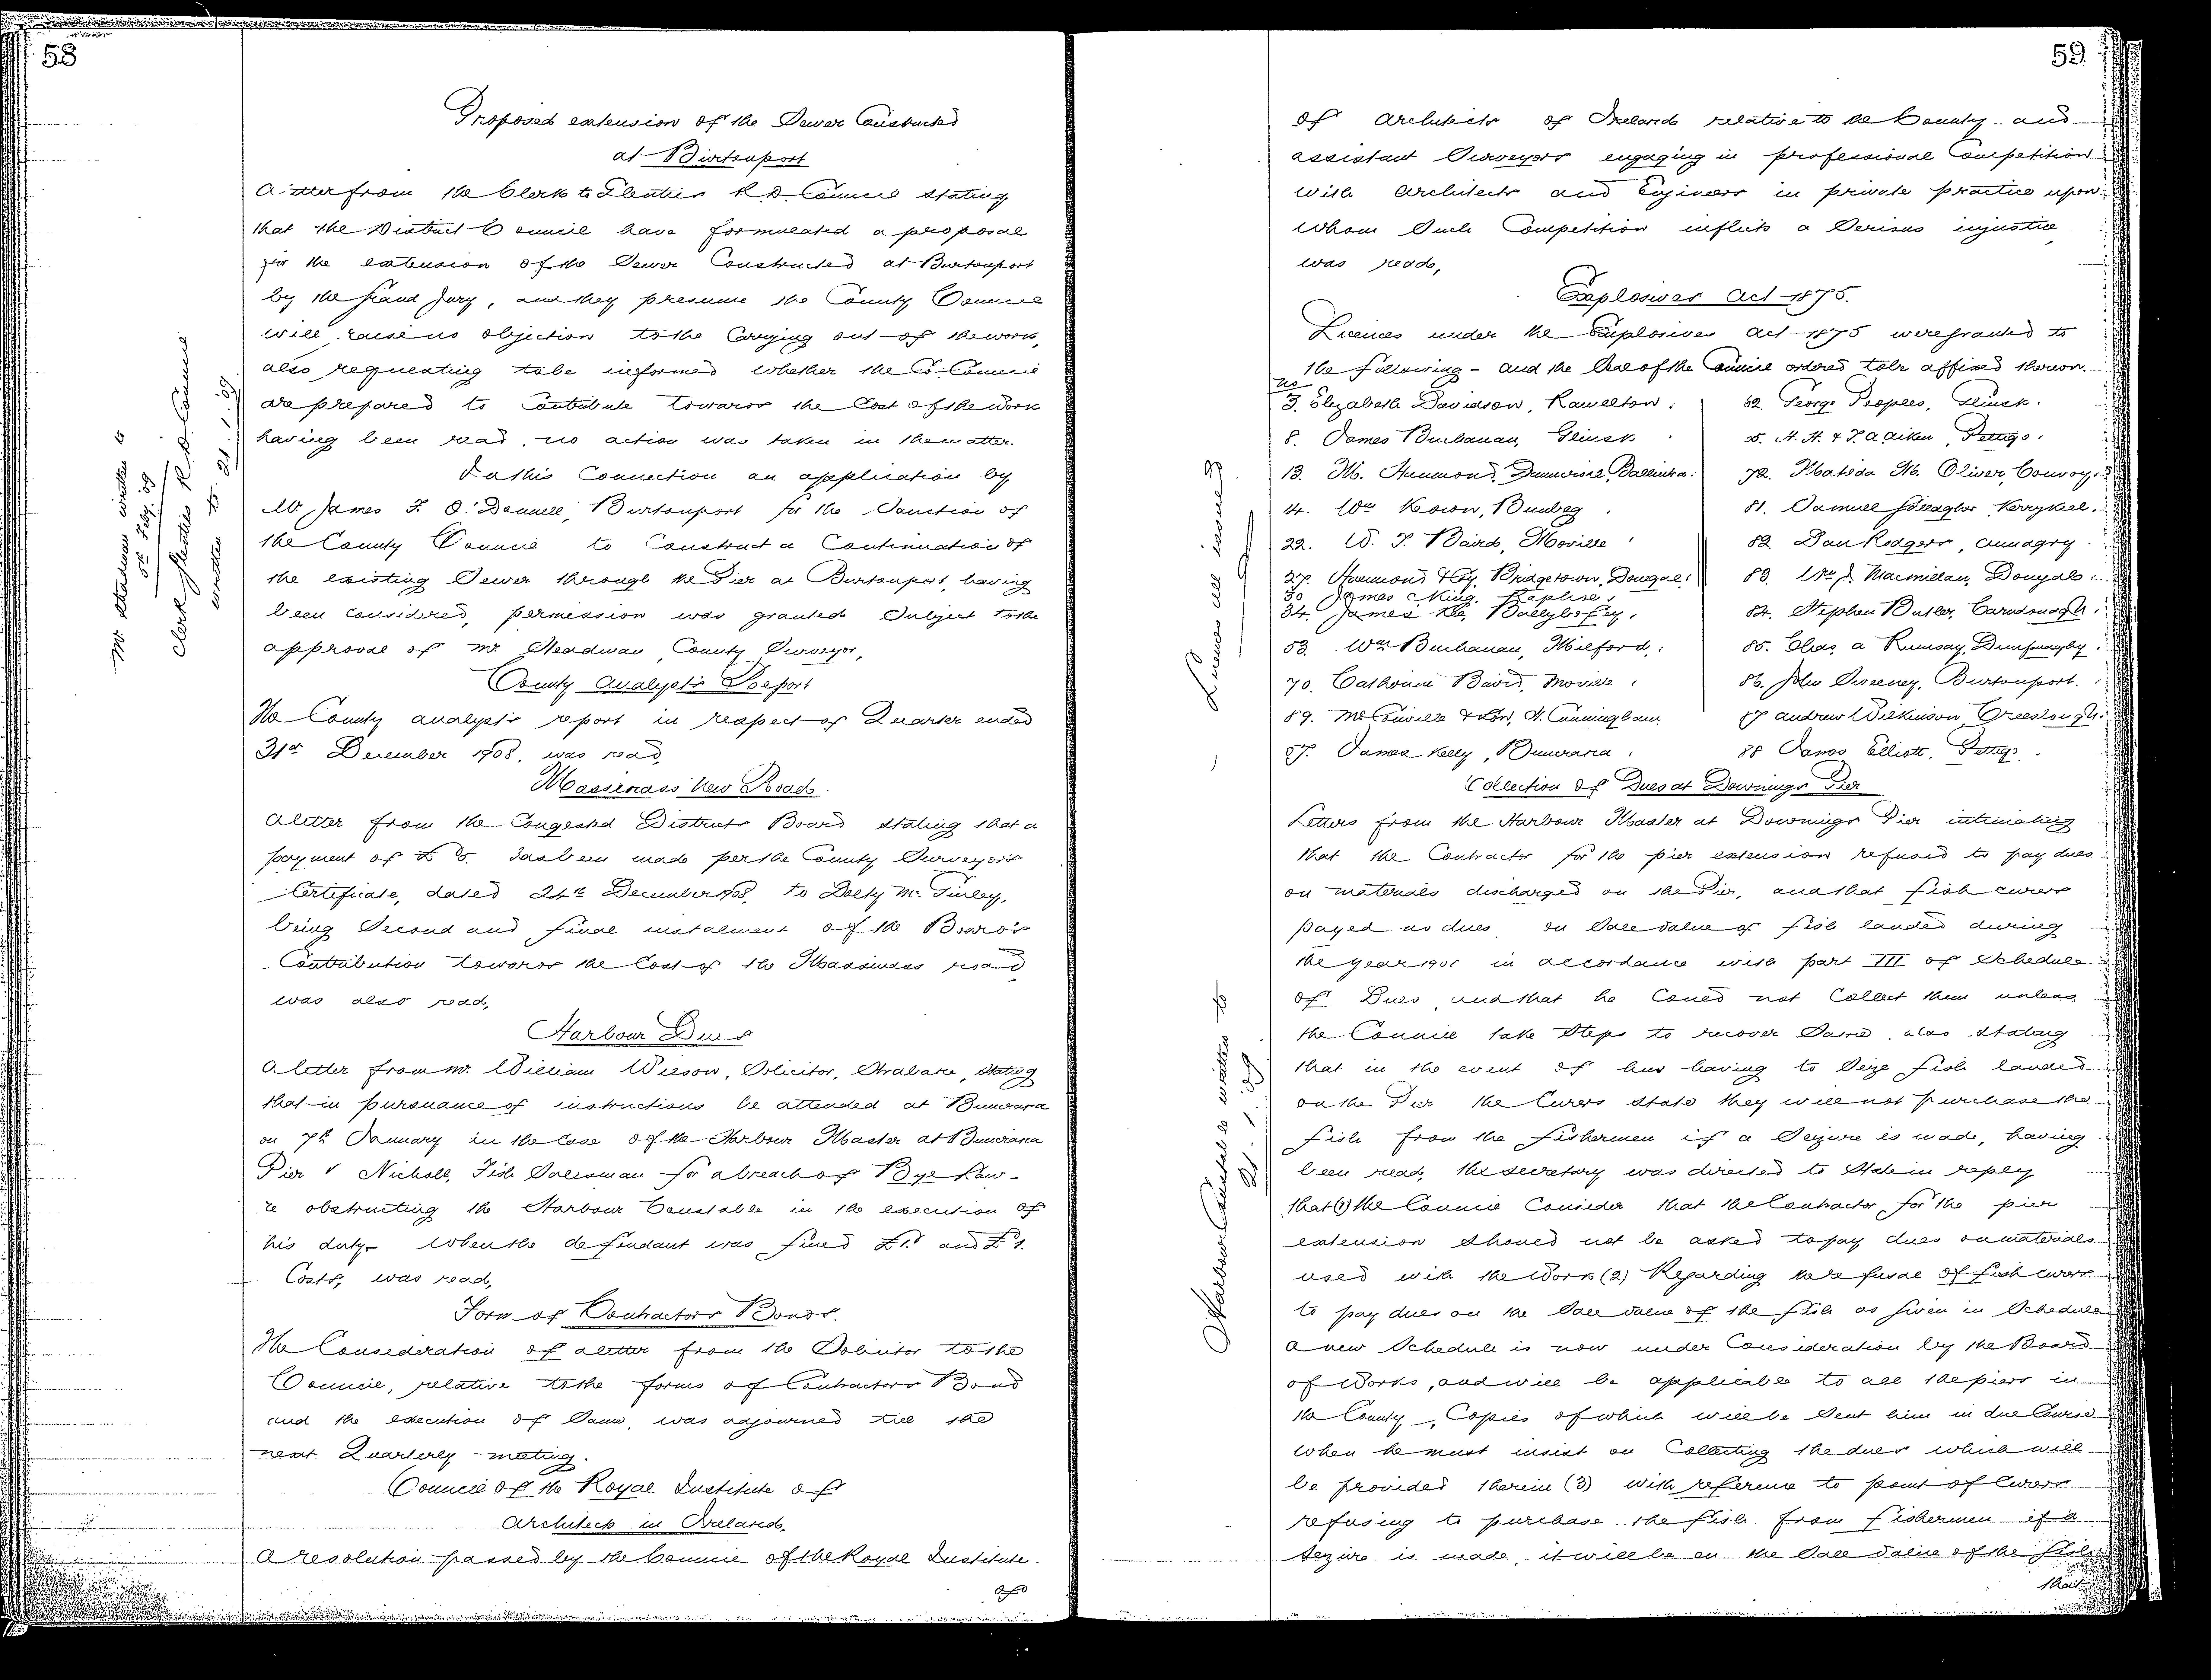 58
Proposed extension of the Sewer Constructed
at Burtonport
A letter from the Clerk to Glenties R. D. Council stating
that the District Council have formulated a proposal
for the extension of the Sewer Constructed at Burtonport
by the Grand Jury, and they presume the County Council
will raise no objection to the Carrying out of the work,
also requesting to be informed whether the Co. Council
are prepared to Contribute towards the Cost of the work
having been read, no action was taken in the matter.
In this Connection an application by
Mr James F. O'Donnell, Burtonport for the Sanction of
the County Council to Construct a Continuation of
the existing Sewer through the Pier at Burtonport, having
been Considered, permission was granted Subject to the
approval of Mr Steadman County Surveyor,
Mr Steadman written to
5th Feby. 09
Clerk Glenties R. D. Council
written to 21.1.09
County Analyst's Report
The County analyst's report in respect of Quarter ended
31st December 1908, was read,
Massinass New Road.
A letter from the Congested Districts Board stating that a
payment of £5. has been made per the County Surveyor's
Certificate, dated 24th December 1908, to Doalty Mc Ginley,
being Second and final instalment of the Board's
Contribution towards the Cost of the Massinass road
was also read,
Harbour Dues
A letter from Mr. William Wilson, Solicitor, Strabane, stating
that in pursuance of instructions he attended at Buncrana
on 7th January in the Case of the Harbour Master at Buncrana
Pier v Nicholl, Fish Salesman for a breach of Bye Law -
re obstructing the Harbour Constable in the execution of
his duty - when the defendant was fined £1. and £1.
Costs, was read,
Form of Contractors Bonds.
The Consideration of a letter from the Solicitor to the
Council, relative to the forms of Contractors Bond
and the execution of Same, was adjourned till the
next Quarterly meeting.
Council of the Royal Institute of
Architects in Ireland,
A resolution passed by the Council of the Royal Institute
of
59
of Architects of Ireland relative to the County and
assistant Surveyors engaging in professional Competition
with Architects and Engineers in private practice upon
whom Such Competition inflicts a Serious injustice
was read,
Explosives Act 1875.
Licences under the Explosives Act 1875 were granted to
the following - and the Seal of the Council ordered to be affixed thereon.
No
3. Elizabeth Davidson, Ramelton. 62. George Peoples, Glinsk.
8. James Buchanan, Glinsk. A. H. & J. A Aiken, Pettigo.
13. M. Hammond, Ballintra. 72. Matilda M. Oliver, Convoy.
14. Wm Keown, Bunbeg. 81. Samuel Kerrykeel.
22. W. J. Baird, Moville 82 Dan Rodgers, Annagry.
27. Hammond & Co. Bridgetown, Donegal. 83. Wm J. Macmillan, Donegal.
30 James King, Raphoe.
34. James Kee, Ballybofey. 84. Stephen Butler, Carndonagh.
53. Wm Buchanan, Milford. 85. Chas. A Rumsay, Dunfanaghy.
70. Catherine Baird, Moville. 86. John Sweeney, Burtonport.
89. McConville & Son, N. Cunningham. 87 Andrew Wilkinson, Creeslough.
57. James Kelly, Buncrana. 88 James Elliott, Pettigo.
Licences all issued
Collection of Dues at Downings Pier
Letters from the Harbour Master at Downings Pier intimating
that the Contractor for the pier extension refused to pay dues
on materials discharged on the Pier, and that fish curers
payed no dues on Sale value of fish landed during
the year 1908 in accordance with part III of Schedule
of Dues, and that he Could not Collect them unless
the Council take Steps to recover Same, also stating
that in the event of his having to Seize fish landed
on the Pier the Curers state they will not purchase the
fish from the fishermen if a Seizure is made, having
been read, the secretary was directed to State in reply
that (1) the Council Consider that the Contractor for the pier
extension should not be asked to pay dues on materials
used with the Work (2) Regarding the refusal of fish curers
to pay dues on the Sale value of the fish as given in Schedule
a new Schedule is now under Consideration by the Board
of Works, and will be applicable to all the piers in
the County, Copies of which will be Sent him in due Course
when he must insist on Collecting the dues which will
be provided therein (3) With reference to point of Curers
refusing to purchase the fish from fishermen if a
Seizure is made, it will be on the Sale value of the fish
that
Harbour Constable written to
21.1.09